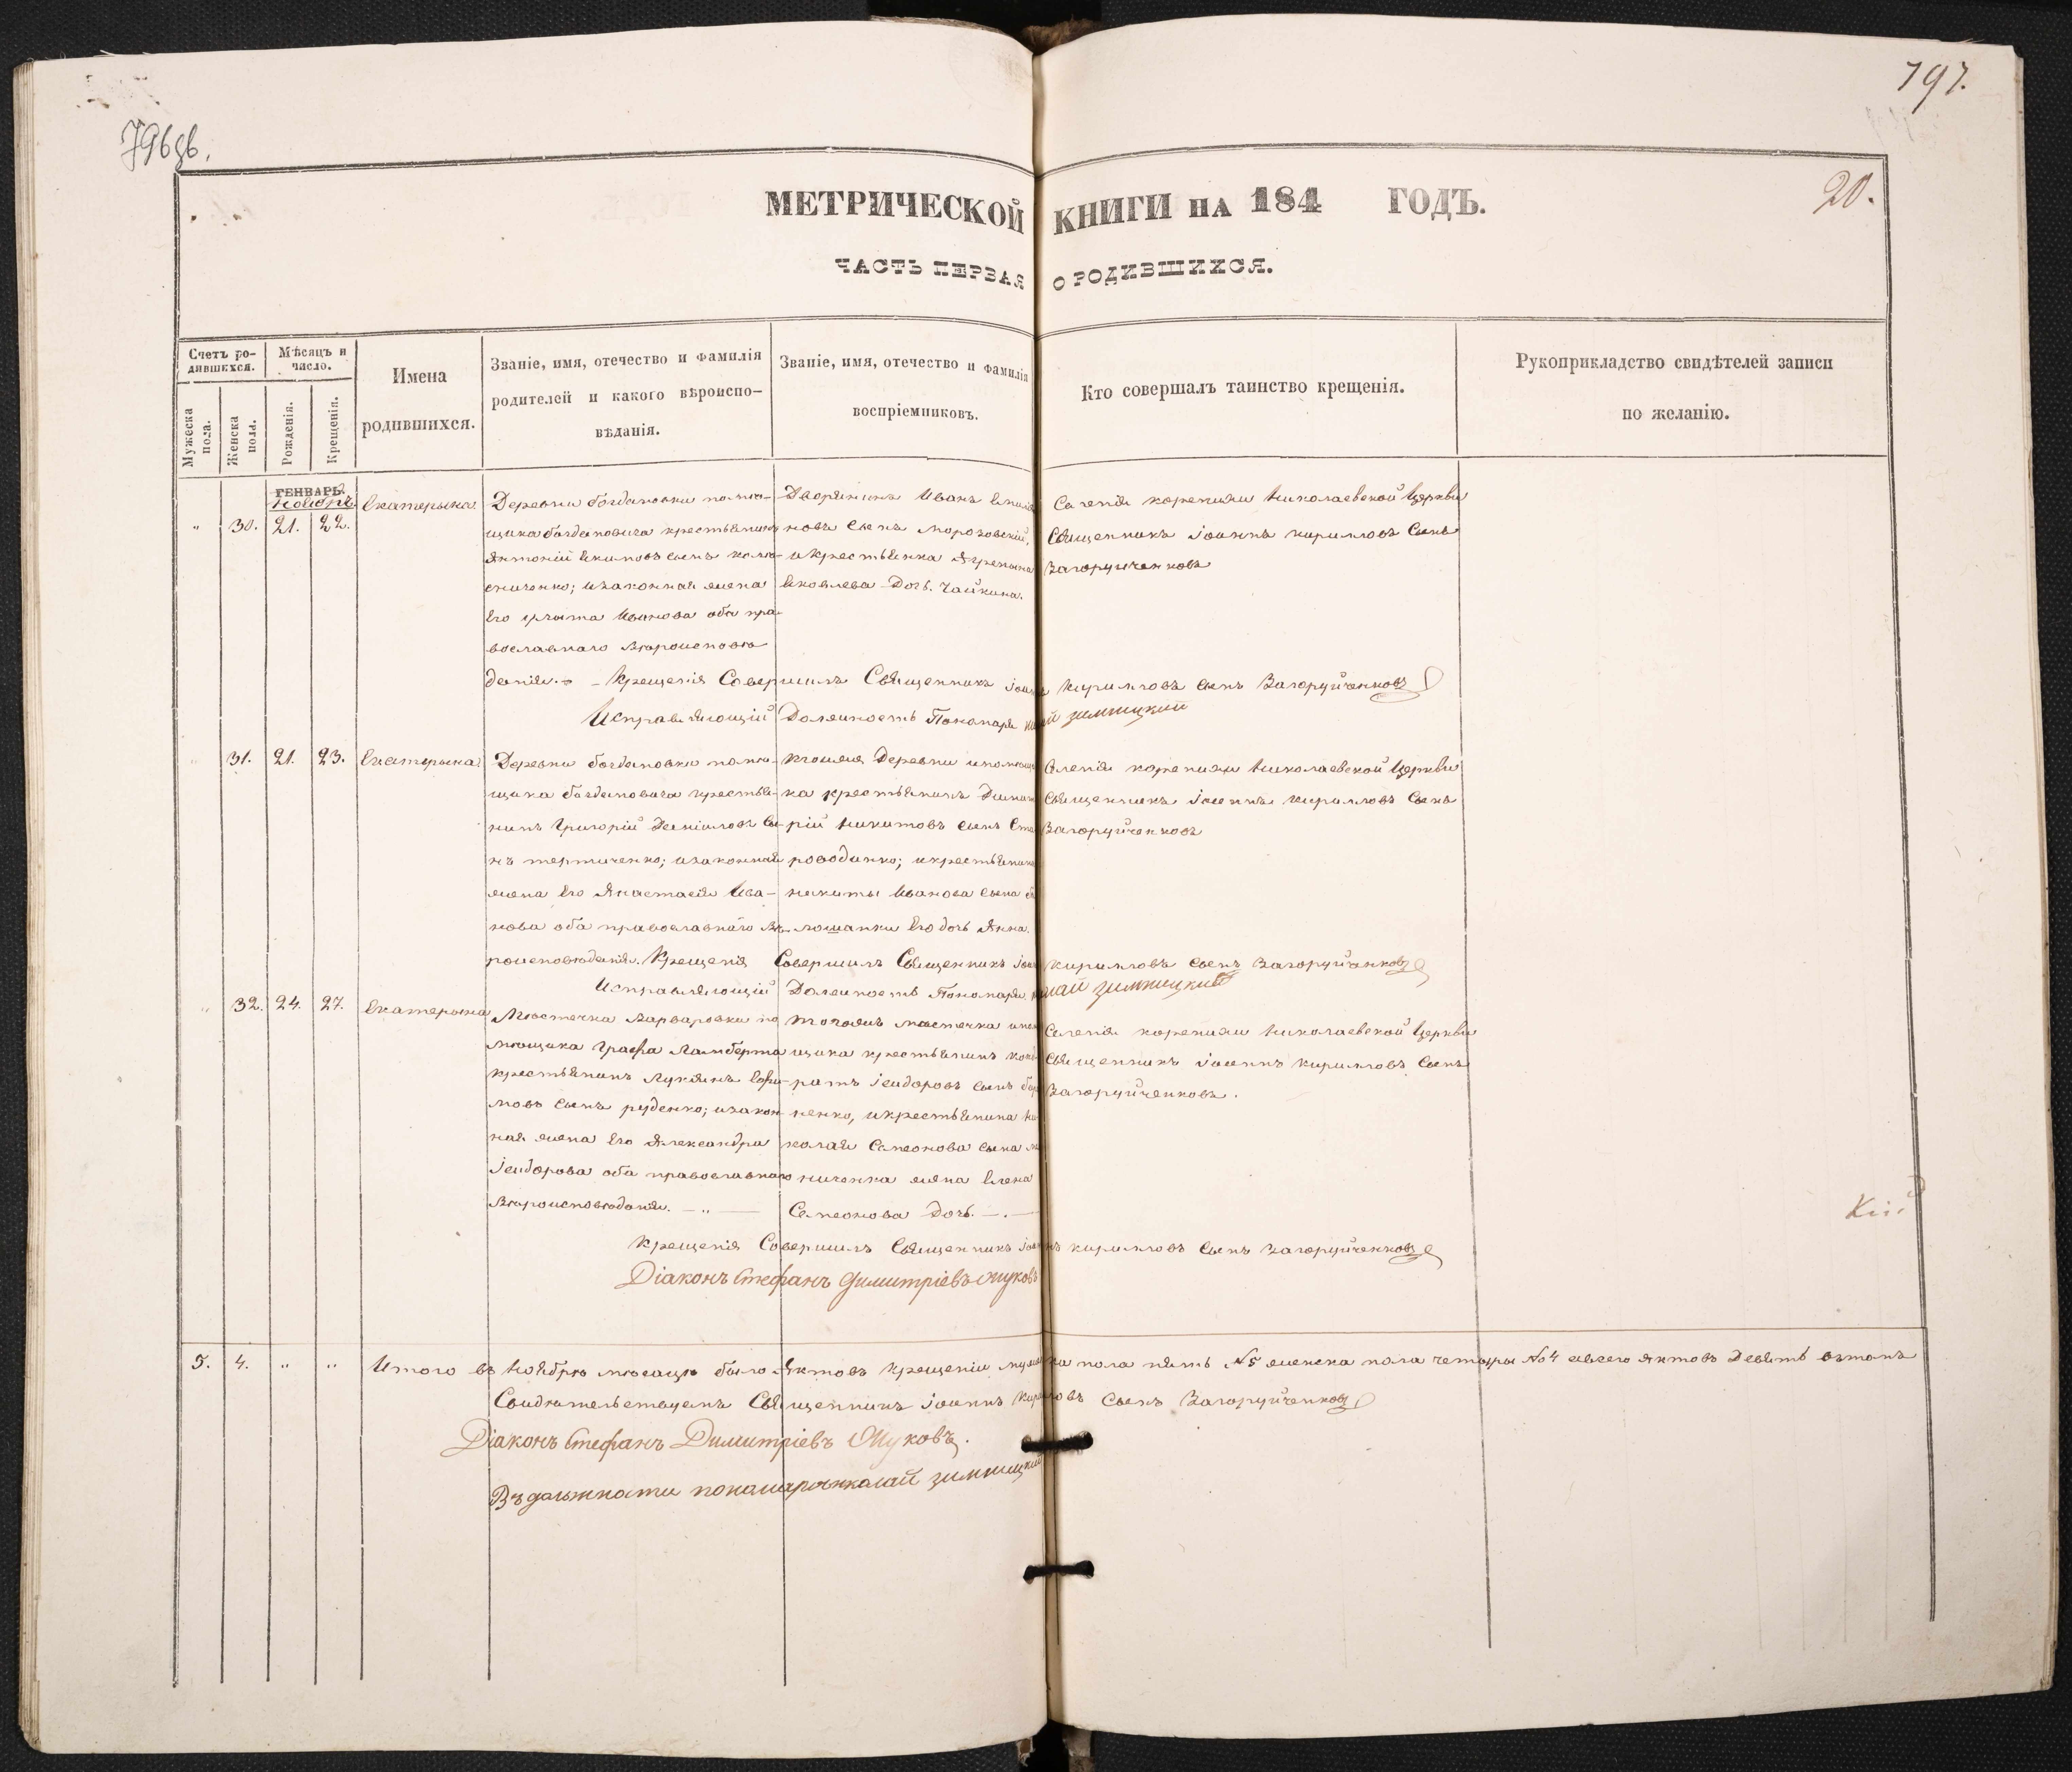 797.
796об.
20.
МЕТРИЧЕСКОЙ КНИГИ НА 184 ГОДЪ.
ЧАСТЬ ПЕРВАЯ О РОДИВШИХСЯ.
Счетъ ро-
дившихся.
Мужеска
пола.
Женска
пола.
Мѣсяцъ и
число.
Рожденія.
Крещенія.
Имена
родившихся.
Званіе, имя, отечество и фамилія
родителей и какого вѣроиспо-
вѣданія.
Званіе, имя, отечество и фамилія
воспріемниковъ.
Кто совершалъ таинство крещенія.
Рукоприкладство свидѣтелей записи
по желанію.
ГЕНВАРЬ.
Ноябрь
" 30. 21. 22. Екатерына
Деревни богдановки помѣ-
щика богдановича крестьянинъ
Антоній Екимовъ сынъ
изаконная жена
Его Иванова оба пра-
вославнаго вѣроисповѣ
данія.
Дворянинъ Иванъ
новъ сынъ Морозовскій,
икрестьянка Агрепына
Яковлева Дочь. Чайкина.
Селенія коренихи Николаевской Церкви
Священникъ Іоаннъ кирилловъ Сынъ
Загоруйченковъ
Крещенія Совершилъ Священникъ Іоаннъ Кирилловъ сынъ Загоруйченковъ
Исправляющій Должность Пономаря зимницкий
" 31. 21. 23. Екатерына
Деревни богдановки помѣ-
щика богдановича крестья-
нинъ Григорій Даніиловъ Сы-
нъ тертиченко; изаконная
жена Его Анастасія Ива-
нова оба православнаго вѣ-
роисповѣданія.
тоияжъ Деревни ипомѣщи
ка крестьянинъ Димит
рій Никитовъ сынъ Ста
рободинко; икрестьянина
никиты Иванова сына
лошапки Его дочь Анна.
Селенія коренихи Николаевской Церкви
Священникъ Іоаннъ кирилловъ Сынъ
Загоруйченковъ
Крещенія Совершилъ Священникъ Іоаннъ кирилловъ сынъ Загоруйченковъ
Исправляющій Должность Пономаря зимницкий
" 32. 24. 27. Екатерына
Мѣстечка Варваровки по
мѣщика Графа Ламберта
крестьянинъ Лукіянъ Ефи-
мовъ сынъ руденко; изакон-
ная жена Его Александра
Ісидорова оба православнаго
Вѣроисповѣданія. — „ —
тогожъ мѣстечка ипомѣ
щика крестьянинъ конд
ратъ Ісидоровъ сынъ
ненко, икрестьянина Ни
колая Семеонова сына
ниченка жена Елена
Семеонова Дочь. — . —
Селенія коренихи Николаевской Церкви
Священникъ Іоаннъ Кирилловъ Сынъ
Загоруйченковъ.
Крещенія Совершилъ Священникъ Іоаннъ кирилловъ Сынъ Загоруйченковъ
Діаконъ Стефанъ Димитріевъ Жуковъ
Кій
5. 4. " " Итого въ Ноябрѣ мѣсяцѣ было Актовъ Крещеніи мужеска пола пять №5 женска пола четыры №4 авсего актовъ Девять вътомъ
Свидѣтельствуемъ Священникъ Іоаннъ Кирилловъ Сынъ Загоруйченковъ
Діаконъ Стефанъ Димитріевъ Жуковъ.
Въ должности понамаря зимницкий